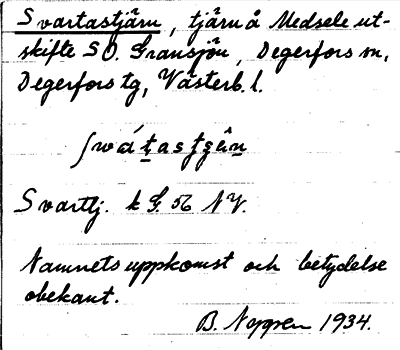 Svartastjärn, tjärn å Medsele ut-
skifte SO. Gransjön, Degerfors sn,
Degerfors tg, Västerb. l.
Svarttj. k G. 56 NV.
Namnets uppkomst och betydelse
obekant.
B. 1934.